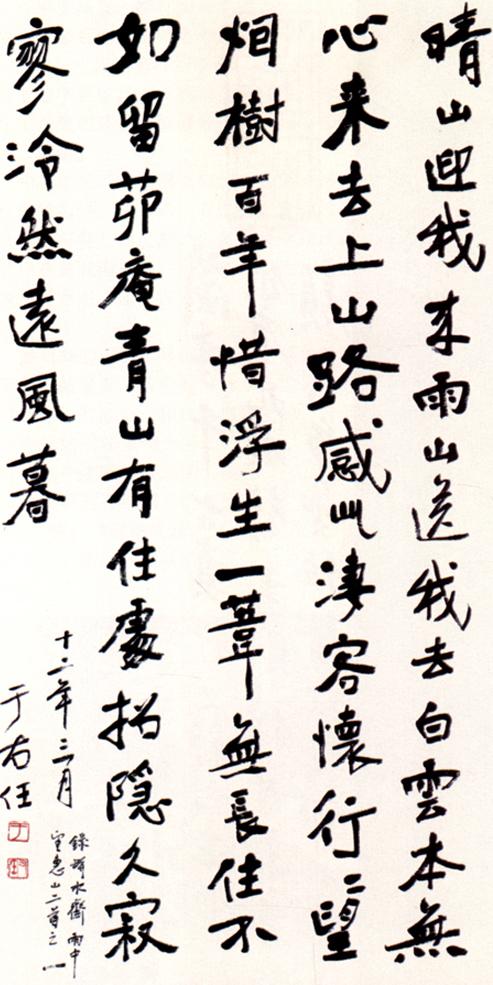 晴山迎我来雨山送我去白雲本無
心来去上山路感此凄客懷行々望
烟樹百年惜浮生一葦無長住不
如留茆庵青山有住處招隱久寂
寥泠然遠風暮
十二年三月
錄水齋雨中
望惠山二首之一
于右任